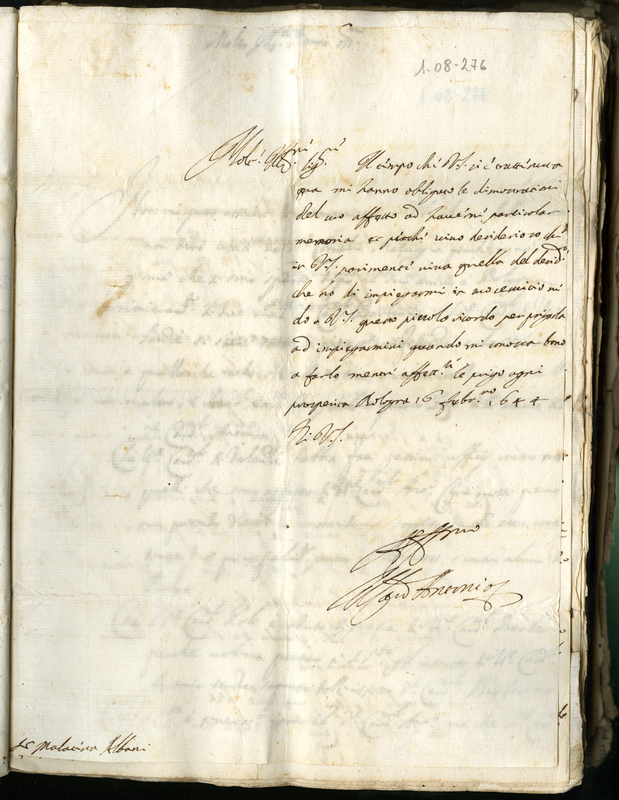 1-08-276
Molt' Ill.re Sig.re Il tempo che V.S. si è trattenuta
qua mi hanno obligato le dimostrationi
del suo affetto ad haverne particolar
memoria, et perche vivo desideroso ch'
in V.S. parimente viva quella del desid.
che ho di impiegarmi in suo servitio mando
a V.S. questo piccolo ricordo per pregarla
ad impiegarmivi quando mi conosca bono
a farlo mentre affett.te le prego ogni
prosperità Bologna 16 febr.ro 1644
Di V.S.
Antonio
Sr. Malatesta Albani